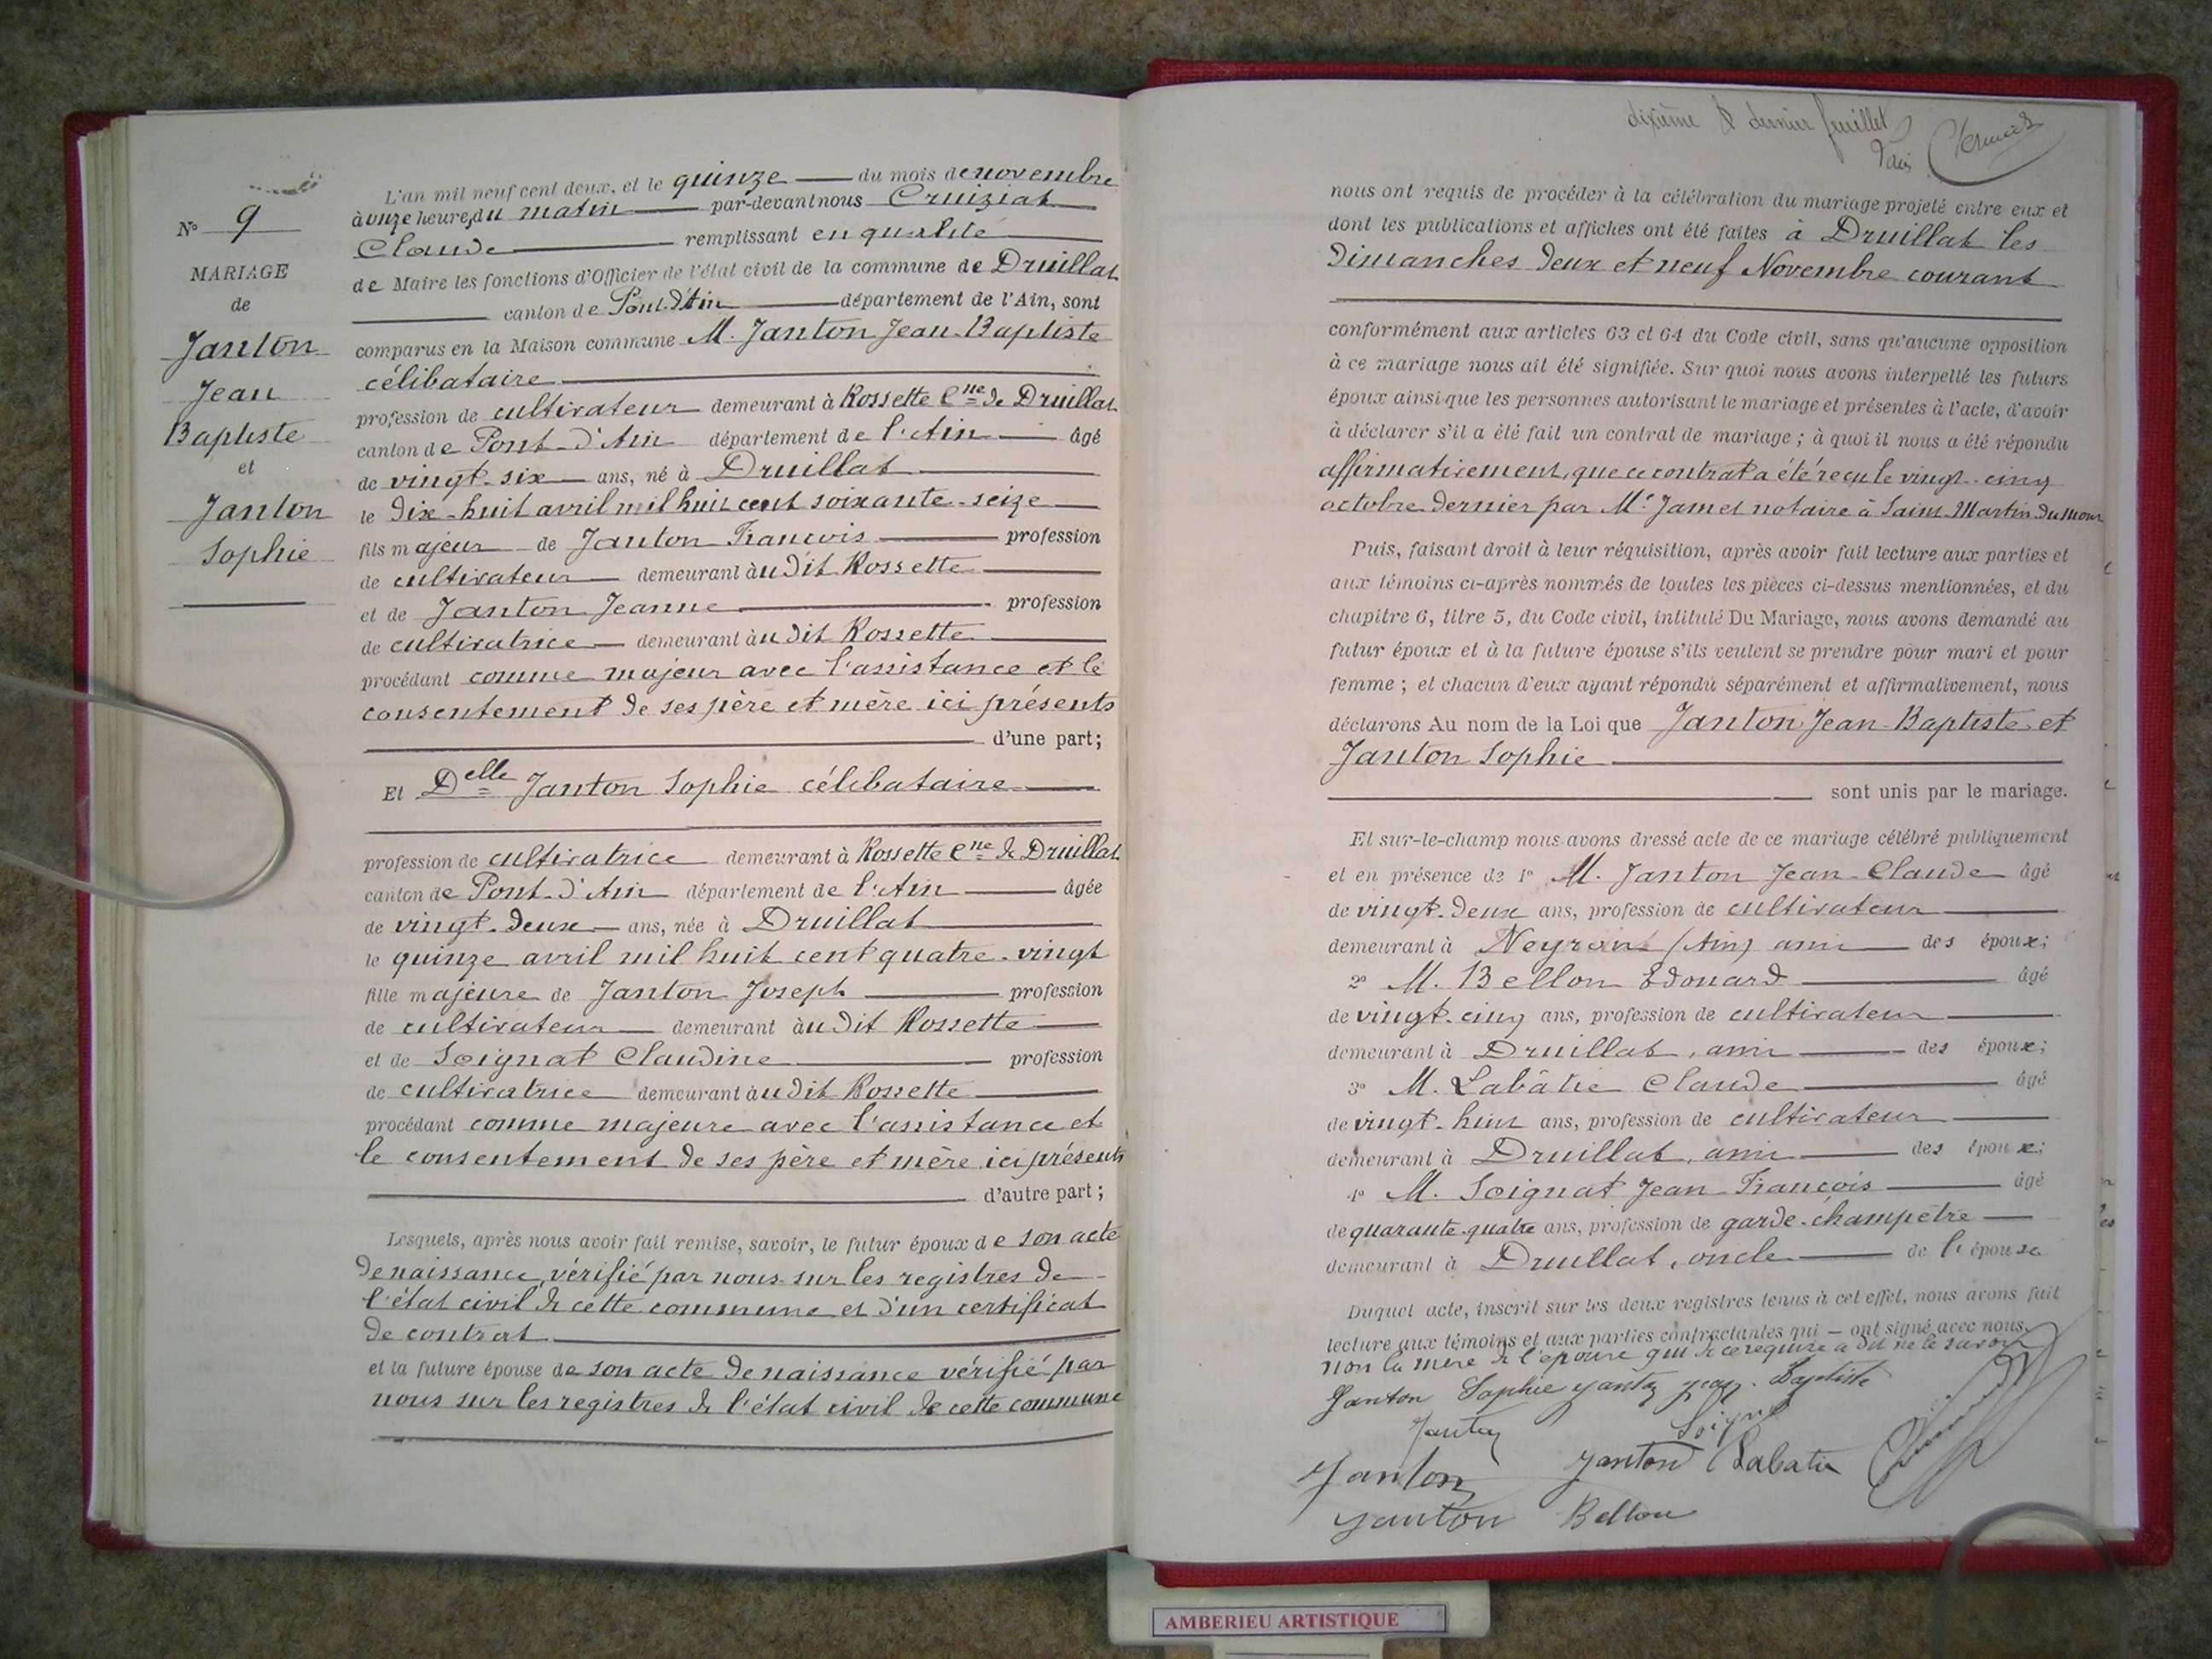 N° 9
MARIAGE
de
Janton
Jean
Baptiste
et
Janton
Sophie
L'an mil neuf cent deux, et le quinze du mois de novembre
à onze heures du matin par-devant nous Cruiziat
Claude remplissant en qualité
de Maire les fonctions d'Officier de l'état civil de la commune de Druillat
canton de Pont-d'Ain département de l'Ain, sont
comparus en la Maison commune M. Janton Jean-Baptiste
célibataire
profession de cultivateur demeurant à Rossette Cne de Druillat
canton de Pont-d'Ain département de l'Ain âgé
de vingt-six ans, né à Druillat
le dix-huit avril mil huit cent soixante-seize
fils majeur de Janton François profession
de cultivateur demeurant àudit Rossette
et de Janton Jeanne profession
de cultivatrice demeurant àudit Rossette
procédant comme majeur avec l'assistance et le
consentement de ses père et mère ici présents
d'une part;
Et Delle Janton Sophie célibataire
profession de cultivatrice demeurant à Rossette Cne de Druillat
canton de Pont-d'Ain département de l'Ain âgée
de vingt-deux ans, née à Druillat
le quinze avril mil huit cent quatre-vingt
fille majeure de Janton Joseph profession
de cultivateur demeurant àudit Rossette
et de Soignat Claudine profession
de cultivatrice demeurant àudit Rossette
procédant comme majeure avec l'assistance et
le consentement de ses père et mère ici présents
d'autre part;
Lesquels, après nous avoir fait remise, savoir, le futur époux de son acte
de naissance, vérifié par nous sur les registres de
l'état civil de cette commune et d'un certificat
de contrat
et la future épouse de son acte de naissance vérifié par
nous sur les registres de l'état civil de cette commune
dixième & dernier feuillet
nous ont requis de procéder à la célébration du mariage projeté entre eux et
dont les publications et affiches ont été faites à Druillat les
Dimanches deux et neuf Novembre courant
conformément aux articles 63 et 64 du Code civil, sans qu'aucune opposition
à ce mariage nous ait été signifiée. Sur quoi nous avons interpellé les futurs
époux ainsi que les personnes autorisant le mariage et présentes à l'acte, d'avoir
à déclarer s'il a été fait un contrat de mariage; à quoi il nous a été répondu
affirmativement, que ce contrat a été reçu le vingt-cinq
octobre dernier par Me Jamet notaire à Saint-Martin du Mont
Puis, faisant droit à leur réquisition, après avoir fait lecture aux parties et
aux témoins ci-après nommés de toutes les pièces ci-dessus mentionnées, et du
chapitre 6, titre 5, du Code civil, intitulé Du Mariage, nous avons demandé au
futur époux et à la future épouse s'ils veulent se prendre pour mari et pour
femme; et chacun d'eux ayant répondu séparément et affirmativement, nous
déclarons Au nom de la Loi que Janton Jean-Baptiste et
Janton Sophie
sont unis par le mariage.
Et sur-le-champ nous avons dressé acte de ce mariage célébré publiquement
et en présence de 1° M. Janton Jean-Claude âgé
de vingt-deux ans, profession de cultivateur
demeurant à Neyron (Ain) ami des époux;
2° M. Bellon Edouard âgé
de vingt-cinq ans, profession de cultivateur
demeurant à Druillat, ami des époux;
3° M. Labâtie Claude âgé
de vingt-huit ans, profession de cultivateur
demeurant à Druillat, ami des époux;
4° M. Soignat Jean François âgé
de quarante-quatre ans, profession de garde-champêtre
demeurant à Druillat, oncle de l'épouse
Duquel acte, inscrit sur les deux registres tenus à cet effet, nous avons fait
lecture aux témoins et aux parties contractantes qui - ont signé avec nous,
non la mère de l'épouse qui de ce requise a dit ne le savoir
Janton Sophie Janton Jean-Baptiste
Janton
Janton Janton Labatie
Janton Bellon
AMBERIEU ARTISTIQUE